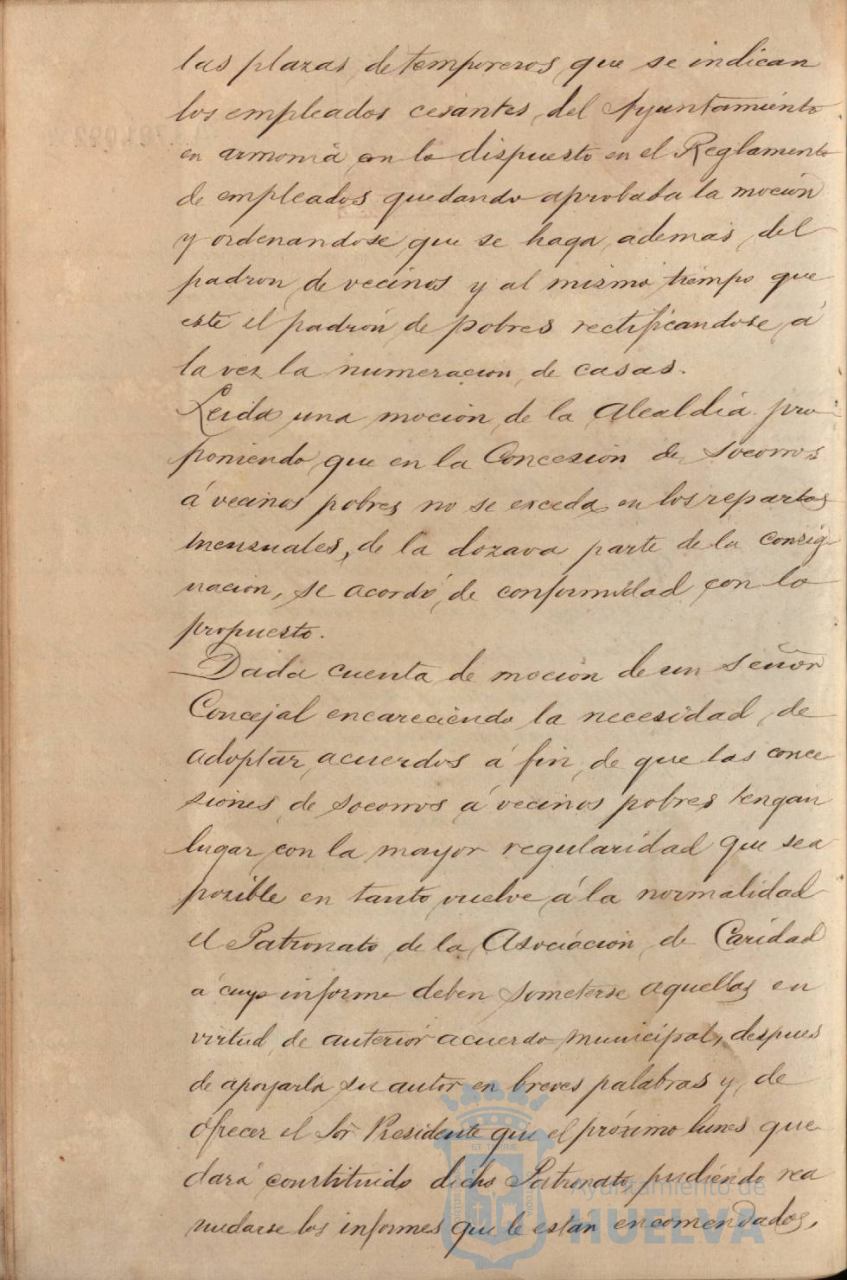 las plazas de temporeros que se indican
los empleados cesantes del Ayuntamiento
en armonia con lo dispuesto en el Reglamento
de empleados quedando aprobada la moción
y ordenandose que se haga además del
padron de vecinos y al mismo tiempo que
este el padrón de pobres rectificandose á
la vez la numeracion de casas.
Leida una moción de la Alcaldía pro-
poniendo que en la Concesión de Socorros
á vecinos pobres no se exceda en los repartos
mensuales, de la dozava parte de la consig-
nación, se acordó de conformidad con lo
propuesto.
Dada cuenta de moción de un Señor
Concejal encareciendo la necesidad de
adoptar acuerdos á fin de que las conce
siones de socorros á vecinos pobres tengan
lugar con la mayor regularidad que sea
posible en tanto vuelve á la normalidad
el Patronato de la Asociación de Caridad
á cuyo informe deben someterse aquellas en
virtud de anterior acuerdo municipal, despues
de apoyarla su autor en breves palabras y de
ofrecer el Sor Presidente que el próximo lunes que
dará constituido dicho Patronato pudiendo rea
nudarse los informes que le estan encomendados,
Ayuntamiento de
HUELVA